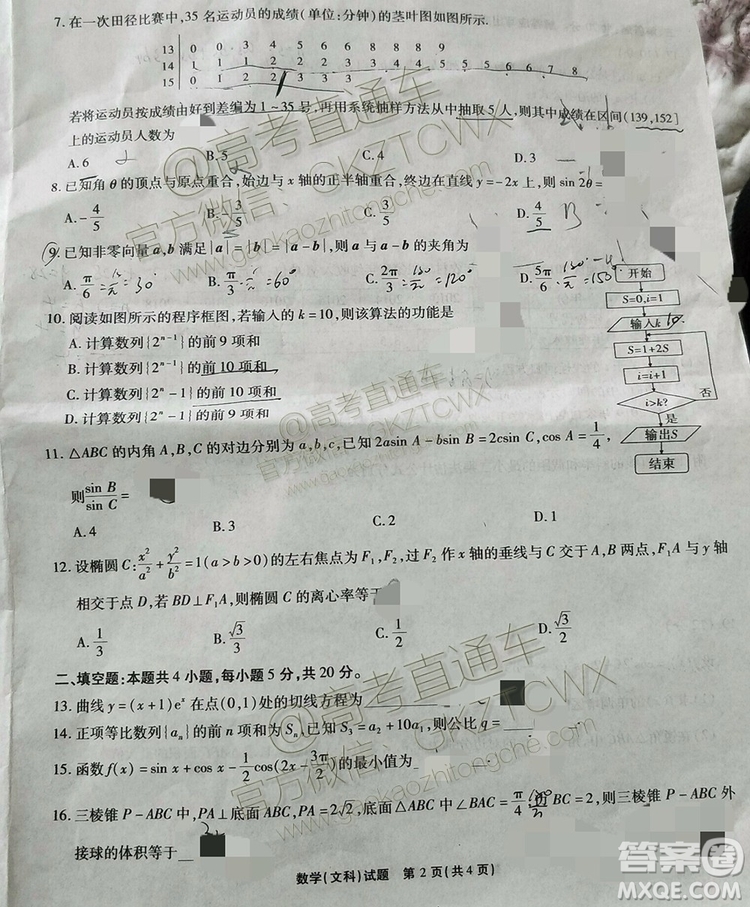 7. 在一次田径比赛中,35 名运动员的成绩(单位:分钟)的茎叶图如图所示.
若将运动员按成绩由好到差编为 1~35 号,再用系统抽样方法从中抽取 5 人,则其中成绩在区间 (139,152]
上的运动员人数为
A. 6 B. 5 C. 4 D. 3
8. 已知角 θ 的顶点与原点重合,始边与 x 轴的正半轴重合,终边在直线 y=-2x 上,则 sin 2θ=
A. -4/5 B. -3/5 C. 3/5 D. 4/5 B
9. 已知非零向量 a,b 满足 |a|=|b|=|a-b|,则 a 与 a-b 的夹角为
A. π/6 =30° B. π/3 =60° C. 2π/3 =120° D. 5π/6 =150°
10. 阅读如图所示的程序框图,若输入的 k=10,则该算法的功能是
A. 计算数列{2ⁿ⁻¹}的前 9 项和
B. 计算数列{2ⁿ⁻¹}的前 10 项和
C. 计算数列{2ⁿ-1}的前 10 项和
D. 计算数列{2ⁿ-1}的前 9 项和
开始
S=0,i=1
输入k
S=1+2S
i=i+1
i>k?
否
是
输出S
结束
11. △ABC 的内角 A,B,C 的对边分别为 a,b,c,已知 2asin A-bsin B=2csin C,cos A=1/4,
则 sin B/sin C =
A. 4 B. 3 C. 2 D. 1
12. 设椭圆 C:x²/a²+y²/b²=1(a>b>0)的左右焦点为 F₁,F₂,过 F₂ 作 x 轴的垂线与 C 交于 A,B 两点,F₁A 与 y 轴
相交于点 D,若 BD⊥F₁A,则椭圆 C 的离心率等于
A. 1/3 B. √3/3 C. 1/2 D. √3/2
二、填空题:本题共 4 小题,每小题 5 分,共 20 分.
13. 曲线 y=(x+1)eˣ 在点(0,1)处的切线方程为
14. 正项等比数列{aₙ}的前 n 项和为 Sₙ,已知 S₃=a₂+10a₁,则公比 q=
15. 函数 f(x)=sin x+cos x-1/2cos(2x-3π/2)的最小值为
16. 三棱锥 P-ABC 中,PA⊥底面 ABC,PA=2√2,底面△ABC 中∠BAC=π/4,边 BC=2,则三棱锥 P-ABC 外
接球的体积等于
数学(文科)试题 第 2 页(共 4 页)
@高考直通车
官方微信:GKZTCWX
www.gaokaozhitongche.com
答案圈
MXQE.COM